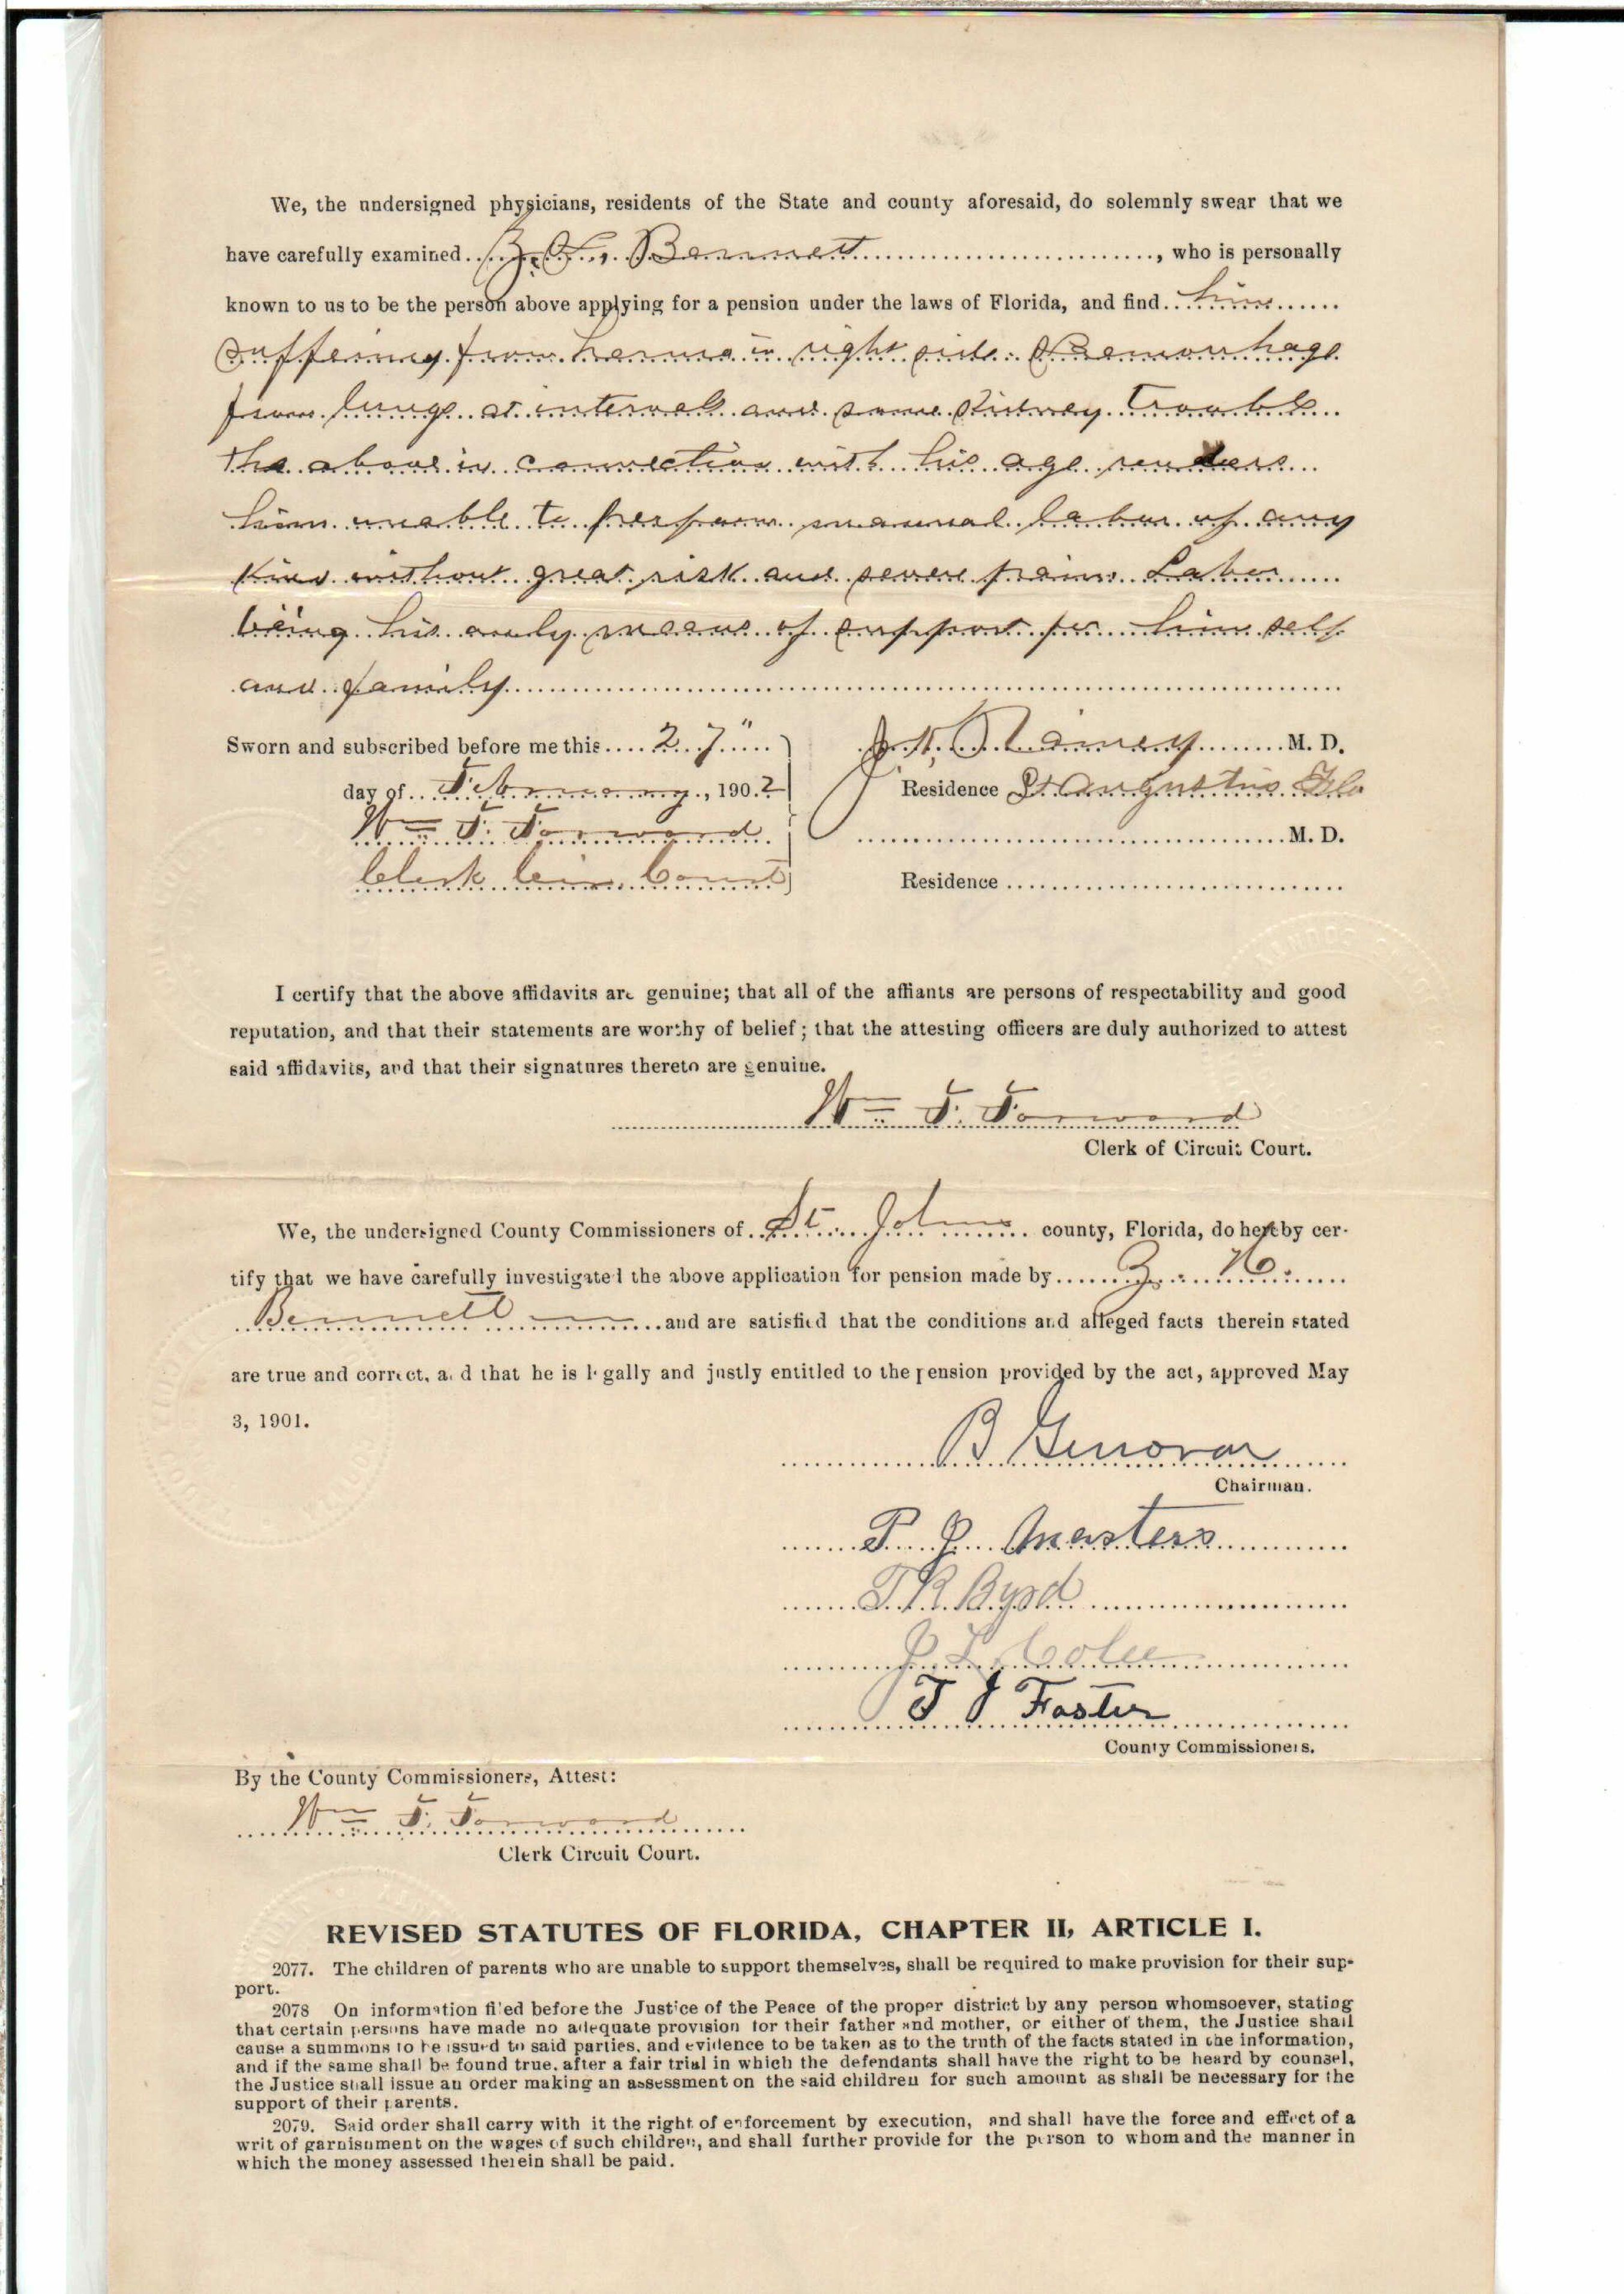 We, the undersigned physicians, residents of the State and county aforesaid, do solemnly swear that we
have carefully examined Z. H. Bennett, who is personally
known to us to be the person above applying for a pension under the laws of Florida, and find him
suffering from hernia in right side. Hemorrhage
from lungs at intervals and some Kidney Trouble
The above in connection with his age renders
him unable to perform manual labor of any
kind without great risk and severe pains. Labor
being his only means of support for him self
and family
Sworn and subscribed before me this 27" J. K. Rainey M. D.
day of February, 1902 Residence St Augustine Fla
Wm F. Forward M. D.
Clerk Cir. Court Residence
I certify that the above affidavits are genuine; that all of the affiants are persons of respectability and good
reputation, and that their statements are worthy of belief; that the attesting officers are duly authorized to attest
said affidavits, and that their signatures thereto are genuine.
Wm F. Forward
Clerk of Circuit Court.
We, the undersigned County Commissioners of St. Johns county, Florida, do hereby cer-
tify that we have carefully investigated the above application for pension made by Z. H.
Bennett and are satisfied that the conditions and alleged facts therein stated
are true and correct, and that he is legally and justly entitled to the pension provided by the act, approved May
3, 1901.
B Genovar
Chairman.
P. J. Masters
T. R. Byrd
J L Colee
T J Foster
County Commissioners.
By the County Commissioners, Attest:
Wm F. Forward
Clerk Circuit Court.
REVISED STATUTES OF FLORIDA, CHAPTER II, ARTICLE I.
2077. The children of parents who are unable to support themselves, shall be required to make provision for their sup-
port.
2078 On information filed before the Justice of the Peace of the proper district by any person whomsoever, stating
that certain persons have made no adequate provision for their father and mother, or either of them, the Justice shall
cause a summons to be issued to said parties, and evidence to be taken as to the truth of the facts stated in the information,
and if the same shall be found true, after a fair trial in which the defendants shall have the right to be heard by counsel,
the Justice shall issue an order making an assessment on the said children for such amount as shall be necessary for the
support of their parents.
2079. Said order shall carry with it the right of enforcement by execution, and shall have the force and effect of a
writ of garnishment on the wages of such children, and shall further provide for the person to whom and the manner in
which the money assessed therein shall be paid.